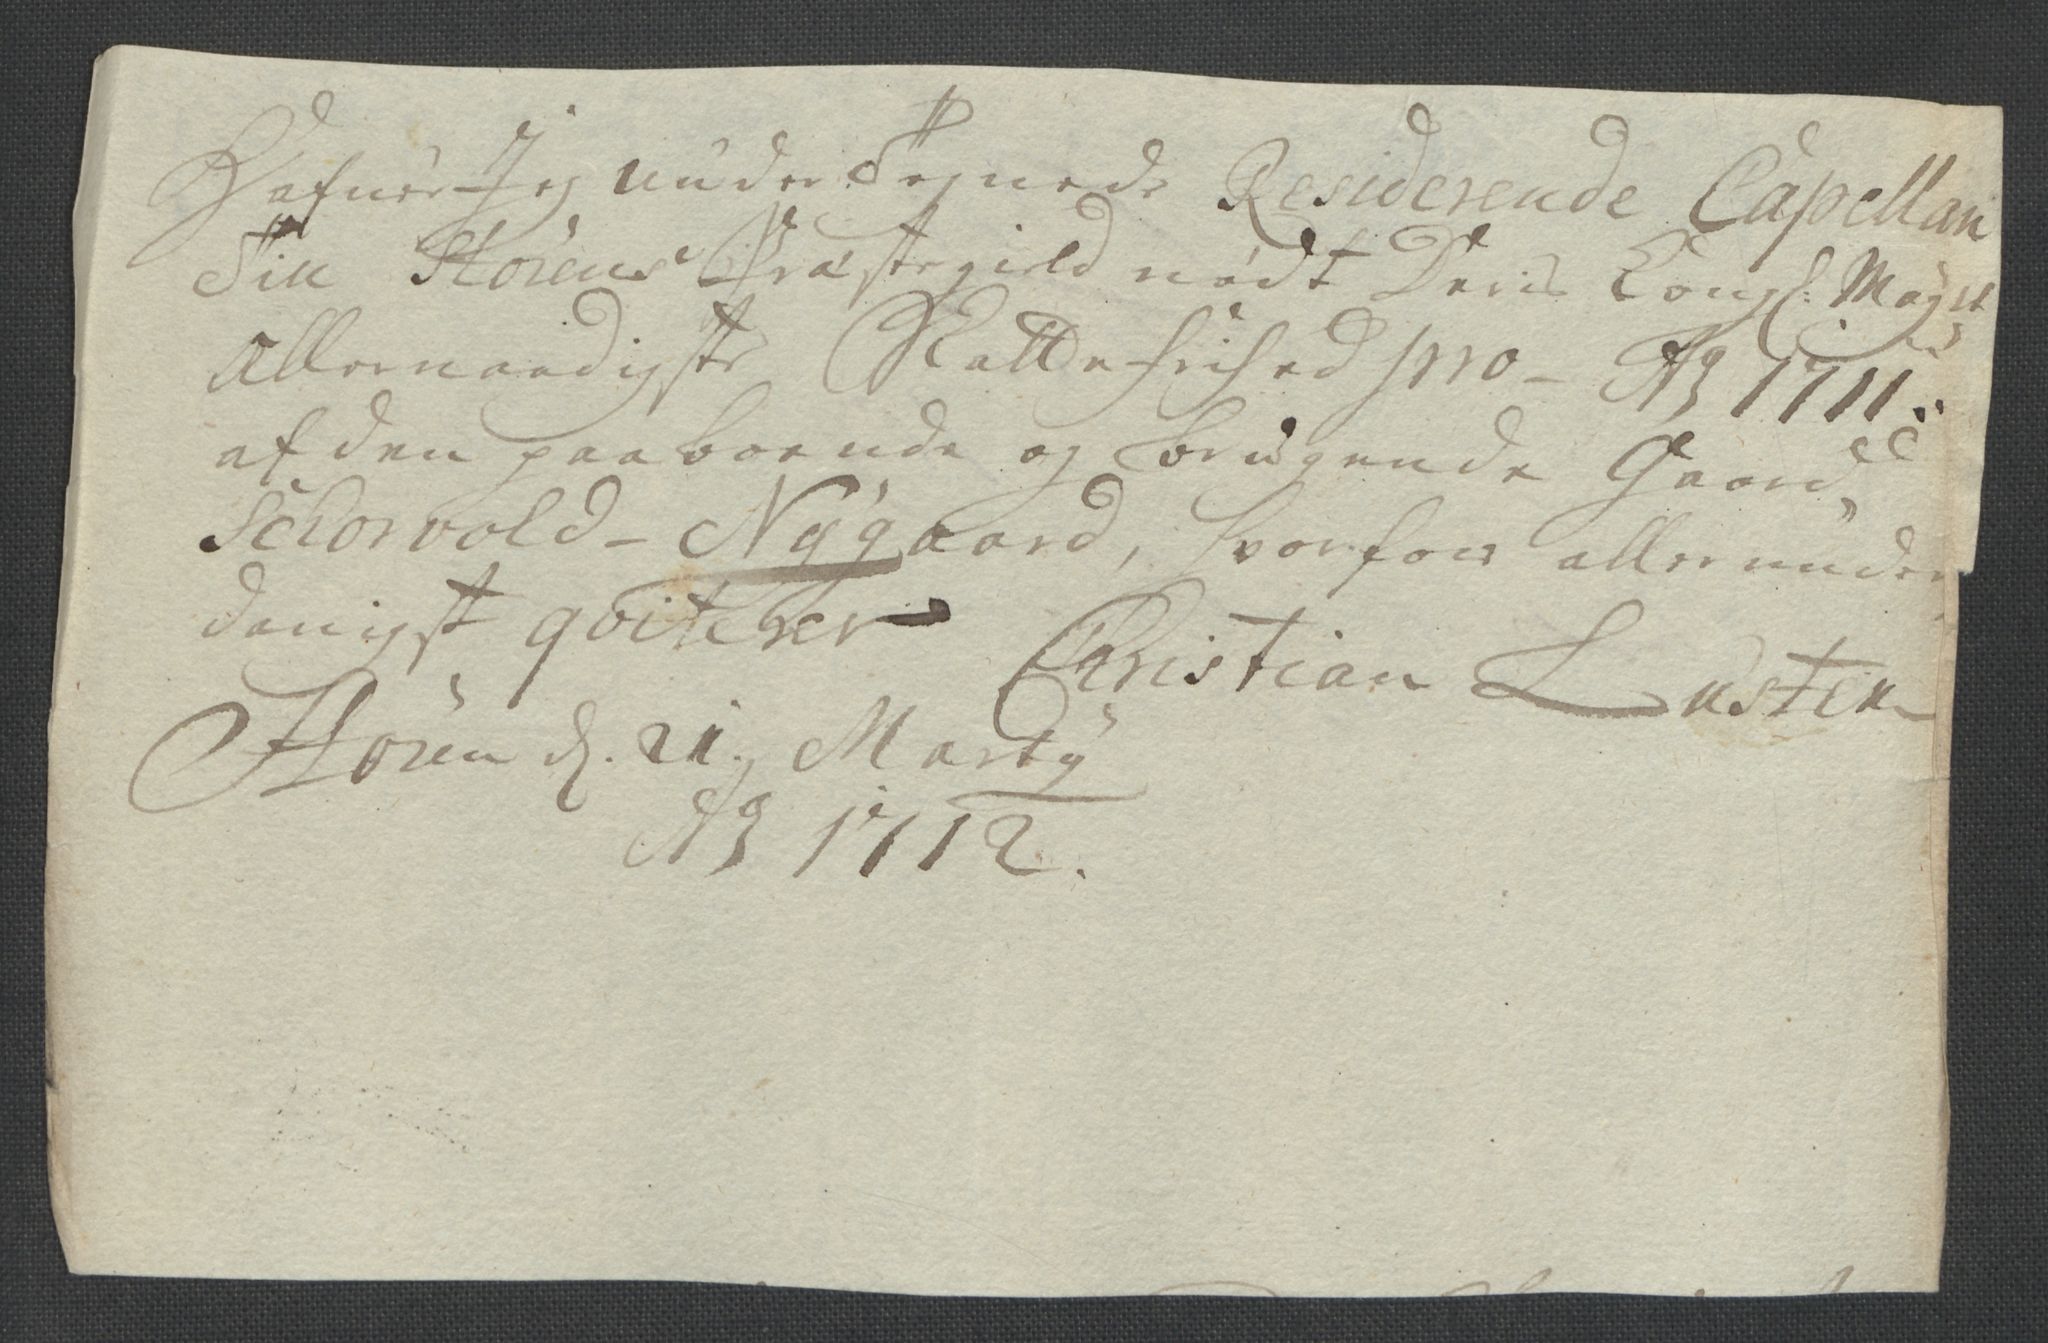 Hafuer Jeg under Tegnede Residerende Capellan
Till Störens Præstegield nødt Deris Kongl: Mayst
Allernaadigste Skatte frihed pro – Ao 1711:
af den paaboende og brugende Gaard
Schorvold – Nÿgaard, hvorfor allerunder
danigst qviterer Christian Lusten
Stören d. 21 Martÿ
Ao 1712.